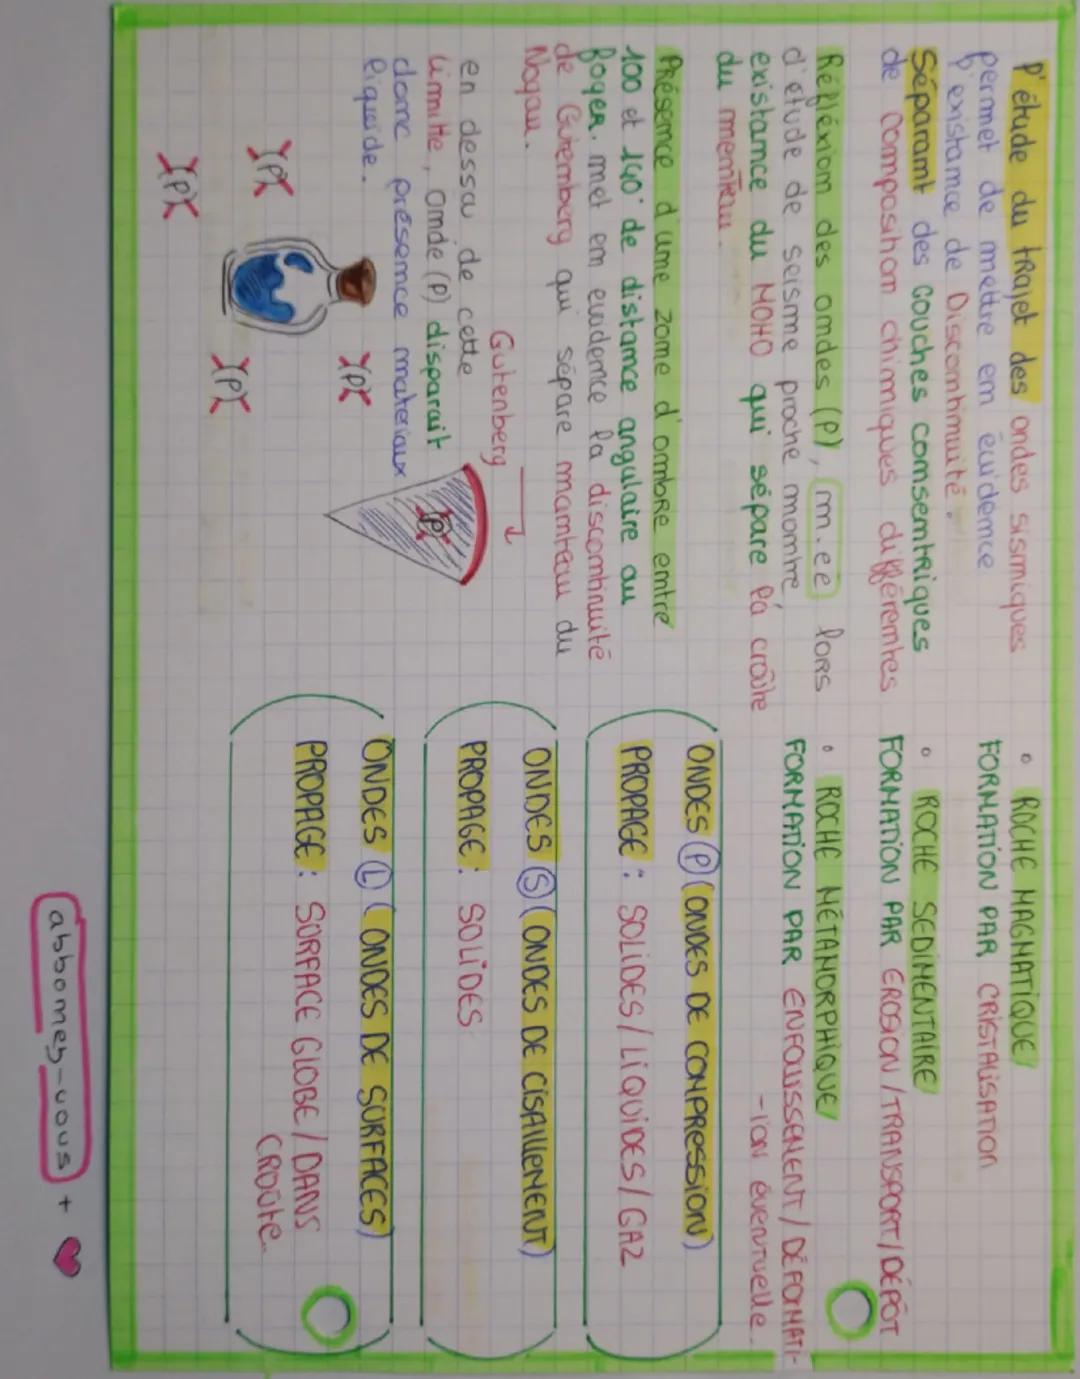 l'étude du trajet des ondes sismiques
permet de mettre en évidence
l'existance de Discontinuité.
Séparant des couches consentriques
de composition chimiques différentes
Réfléxion des ondes (P), m.ee lors
d'étude de seisme proche montre
existance du MOHO qui sépare la croûte
du menteau.
Présence d'une zone d'ombre entre
100 et 140° de distance angulaire au
foyer. met en evidence la discontinuité
de Gutemberg qui sépare manteau du
Noyau.
Gutenberg
en dessou de cette
limmite, onde (P) disparait
donc présence materiaux
liquide.
(P)
(P)
(P)
(P)
(P)
° ROCHE MAGMATIQUE/
FORMATION PAR CRISTALISATION
° ROCHE SEDIMENTAIRE/
FORMATION PAR EROSION/TRANSPORT/DÉPÔT
° ROCHE MÉTAMORPHIQUE/
FORMATION PAR ENFOUISSEMENT/DÉFORMATI-
-ION éventuelle.
ONDES (P) (ONDES DE COMPRESSION)
PROPAGE : SOLIDES/LIQUIDES/GAZ
ONDES (S) (ONDES DE CISAILLEMENT)
PROPAGE : SOLIDES
ONDES (L) (ONDES DE SURFACES)
PROPAGE : SURFACE GLOBE/DANS
CROÛTE.
abbomez-vous + ♥